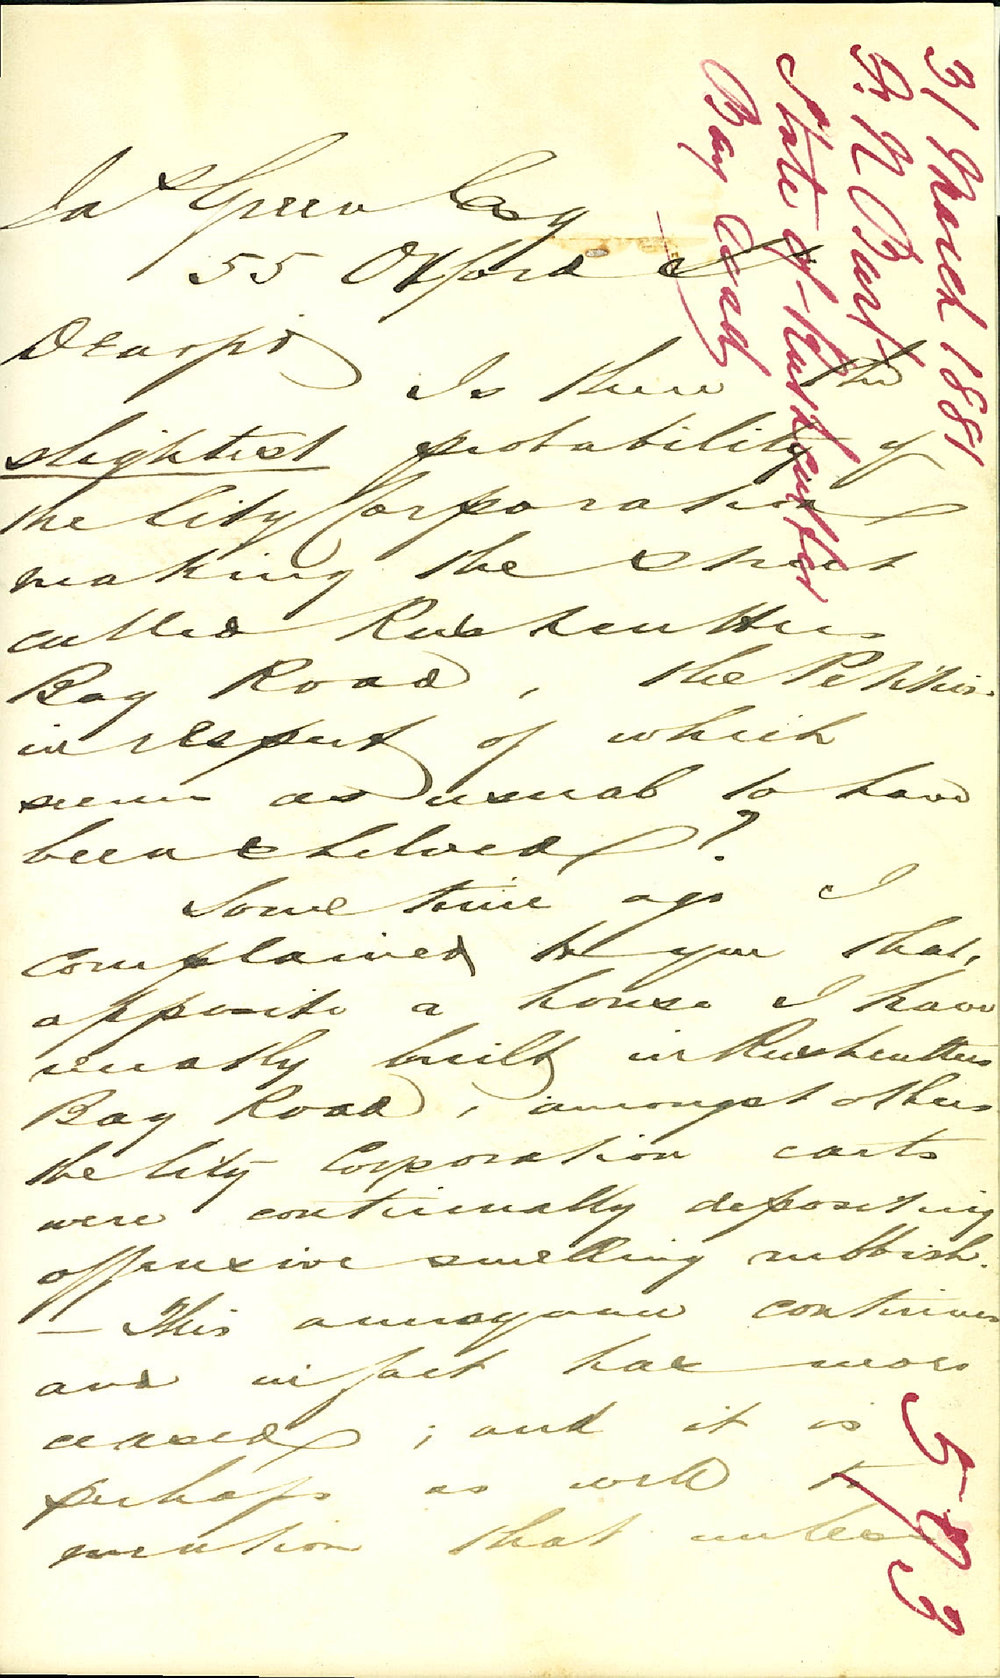 31 March 1881
State of Rushcutter
Bay Road
Jas Green Esq
55 Oxford St
Dear Sir
Is there the
slightest probability of
the City Corporation
making the street
called Rushcutters
Bay Road, the Petition
in respect of which
seems as usual to have
been shelved?
Some time ago I
complained to you that,
opposite a house I have
recently built in Rushcutters
Bay Road, amongst others
the City Corporation carts
were continually depositing
offensive smelling rubbish.
— This annoyance continues
and in fact has never
ceased; and it is
perhaps as well to
mention that unless
593